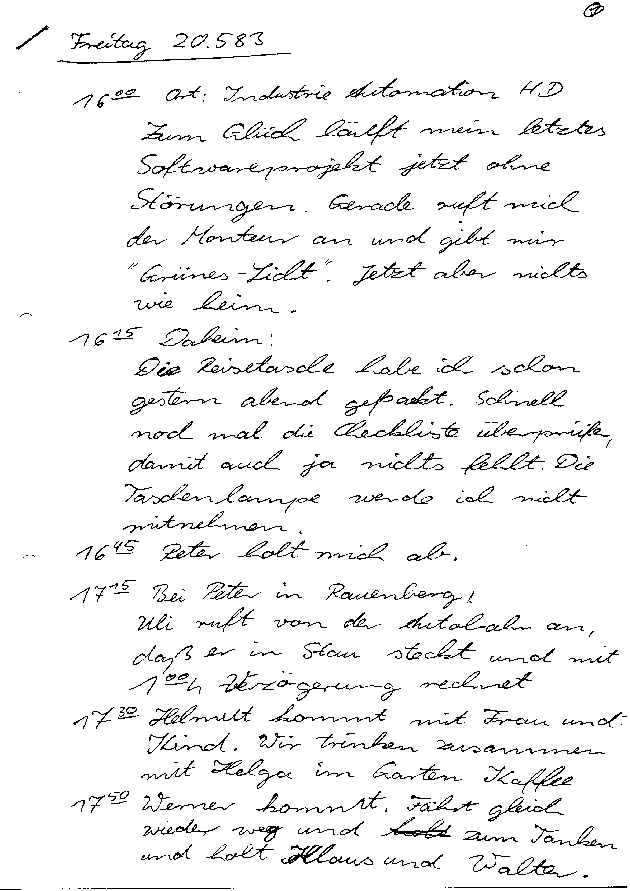 1
Freitag 20.583
16 00 Ort: Industrie Automation HD
Zum Glück läuft mein letztes
Softwareprojekt jetzt ohne
Störungen. Gerade ruft mich
der Monteur an und gibt mir
"Grünes-Licht". Jetzt aber nichts
wie heim.
16 15 Daheim:
Die Reisetasche habe ich schon
gestern abend gepackt. Schnell
noch mal die Checkliste überprüfen,
damit auch ja nichts fehlt. Die
Taschenlampe werde ich nicht
mitnehmen.
16 45 Peter holt mich ab.
17 15 Bei Peter in Rauenberg!
Uli ruft von der Autobahn an,
daß er in Stau steckt und mit
1 00 h Verzögerung rechnet
17 30 Helmut kommt mit Frau und
Kind. Wir trinken zusammen
mit Helga im Garten Kaffee
17 50 Werner kommt. Fährt gleich
wieder weg und holt zum Tanken
und holt Klaus und Walter.